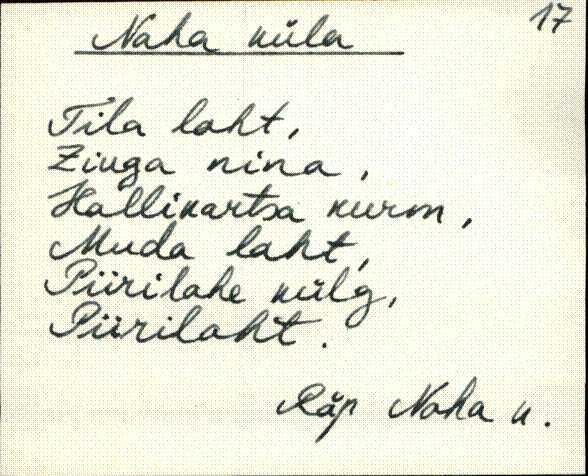 17
Naha küla
Tila laht,
Ziuga nina,
Hallikartsa kurm,
Muda laht,
Piirilahe külg,
Piirilaht.
Räp Naha k.